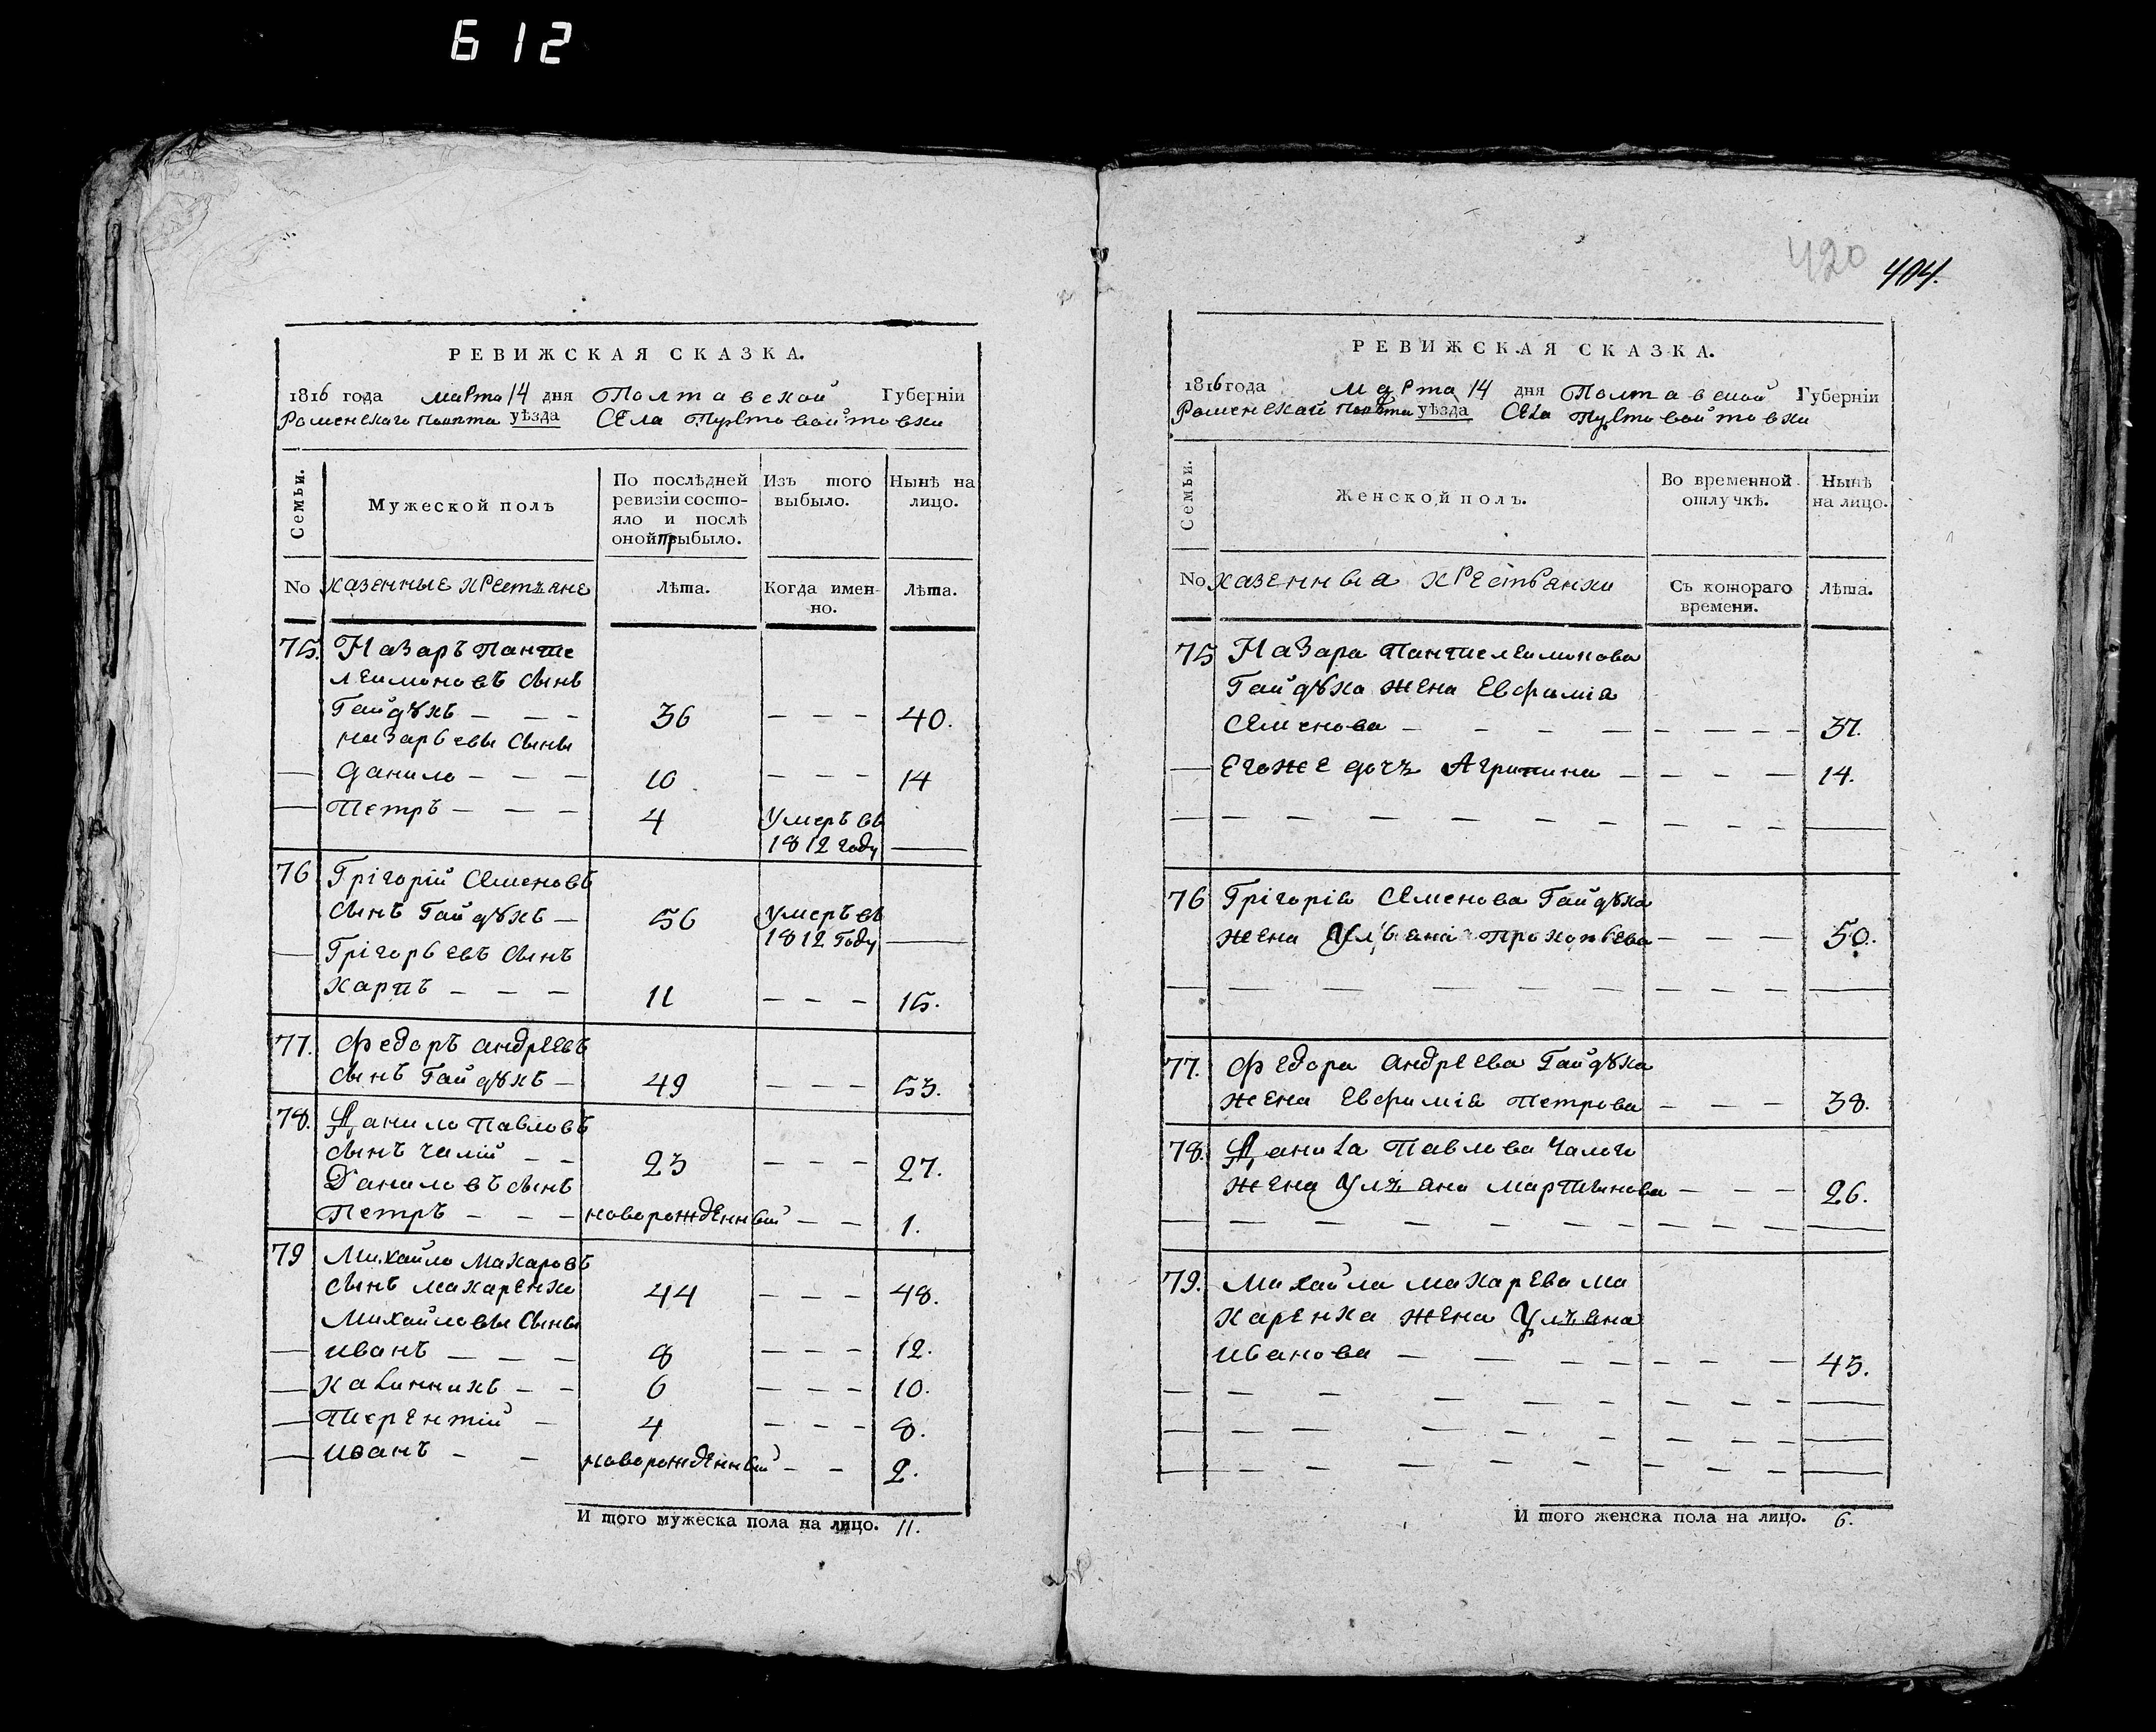 612
420
404.
РЕВИЖСКАЯ СКАЗКА.
1816 года марта 14 дня Полтавской Губерніи
Роменскаго повѣта уѣзда Села Пустовойтовки
Семьи.
Мужеской полъ
По послѣдней ревизіи состо-
яло и послѣ
оной прибыло.
Изъ того
выбыло.
Нынѣ на
лицо.
No казенные крестъяне
лѣта.
Когда имен-
но.
лѣта.
75. Назаръ Панте
леимоновъ сынъ
Гайдукъ — — — 36 — — — 40.
назарьевы сыны
— данило — — — 10 — — — 14
— Петръ — — — 4 умеръ въ
1812 году —
76 Грігорій Семеновъ
сынъ Гайдукъ — 56 умеръ въ
1812 году —
— Грігорьевъ сынъ
карпъ — — — 11 — — — 15.
77. Федоръ андреевъ
сынъ Гайдукъ — 49 — — — 53.
78. Данило Павловъ
сынъ чалій — — 23 — — — 27.
Даниловъ сынъ
Петръ — — — новорожденный — — 1.
79 Михайло Макаровъ
сынъ макаренко 44 — — — 48.
Михайловы сыны
— иванъ — — — 8 — — — 12.
— калинникъ — — 6 — — — 10.
— терентій — 4 — — — 8.
— иванъ — — новорожденный — — 2.
И того мужеска пола на лицо. 11.
РЕВИЖСКАЯ СКАЗКА.
1816 года марта 14 дня Полтавской Губерніи
Роменской повѣта уѣзда Села Пустовойтовки
Семьи.
Женской полъ.
Во временной
отлучкѣ.
Нынѣ
на лицо.
No казенныя крестьянки
Съ котораго
времени.
лѣта.
75 Назара Пантелеимонова
Гайдука жена Евфимія
Семенова — — — — — — — — 37.
— Егоже дочъ Агрипина — — — — 14.
— — — — — — — — — — —
76 Грігорія Семенова Гайдука
жена Ульянія прокопьева — — — 50.
— — — — — — — — — —
77. Федора андреева Гайдука
жена Евфимія Петрова — — — 38.
78. Данила Павлова Чалого
жена Улъяна мартинова — — — 26.
— — — — — — — — — — —
79. Михайла макарева ма
каренка жена Улъяна
иванова — — — — — — — 43.
— — — — — — — — — —
— — — — — — — — — —
— — — — — — — — — — —
И того женска пола на лицо. 6.